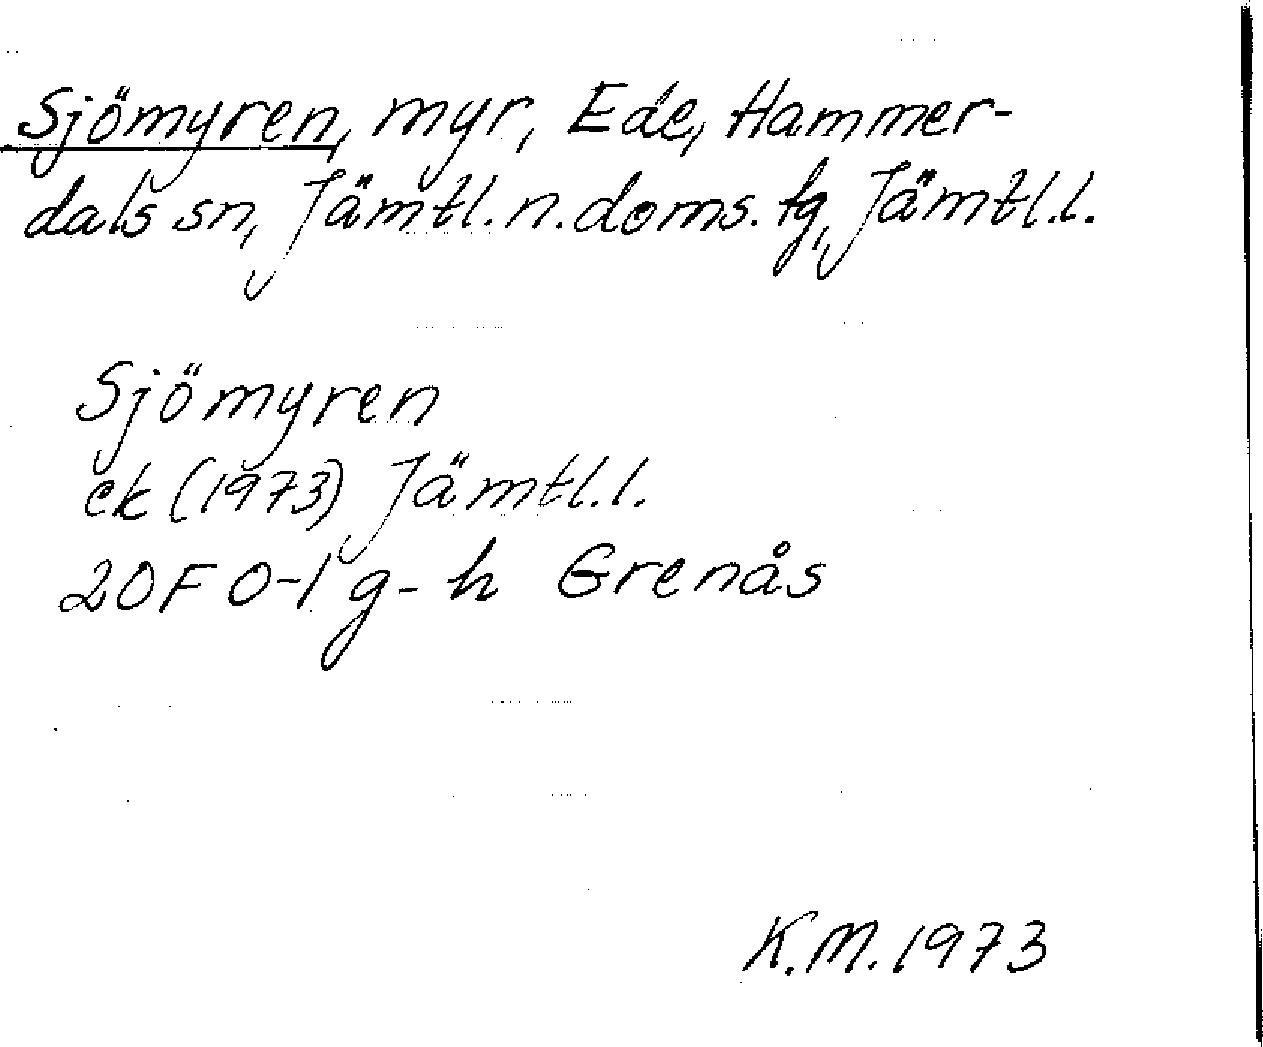 Sjömyren, myr, Ede, Hammer-
dals sn, Jämtl. n. doms. tg, Jämtl. l.
Sjömyren
ek (1973) Jämtl. l.
20F 0-1 g-h Grenås
K.M. 1973